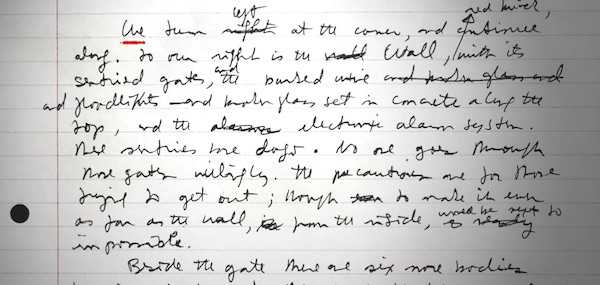 left red brick,
We turn right at the corner, and continue
along. To our right is the wall Wall, with its
sentried gates, and the barbed wire and broken glass and
and floodlights – and broken glass set in concrete along the
top, and the alarms electronic alarm system.
These sentries have dogs. No one goes through
those gates willingly. The precautions are for those
trying to get out; though to make it even
as far as the wall, is from the inside, would be next to
is nearly
impossible.
Beside the gate there are six more bodies